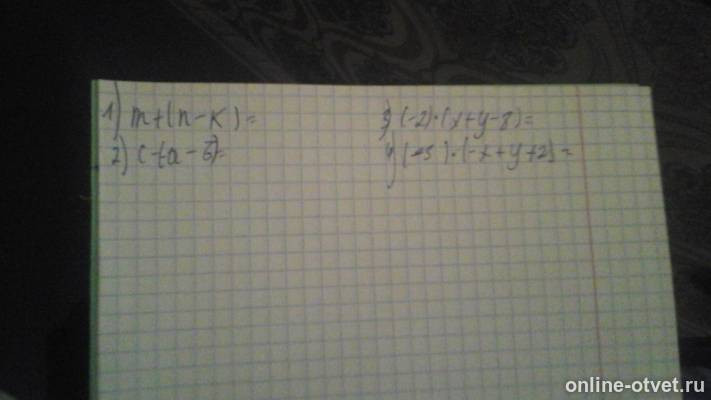 1) m+(n-k)=
2) c-(a-b)=
3) (-2)·(x+y-8)=
4) (-5)·(-x+y+2)=
online-otvet.ru